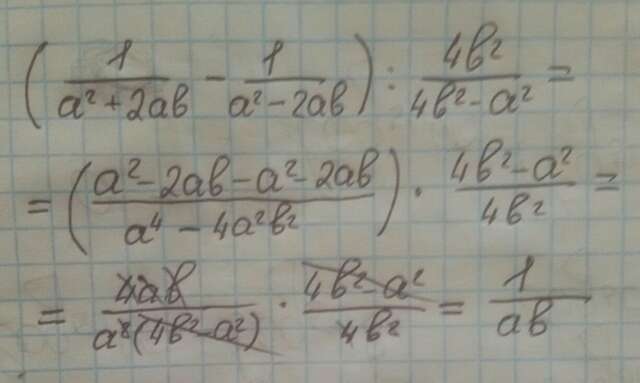 (1/(a² + 2ab) − 1/(a² − 2ab)) : 4b²/(4b² − a²) =
= ((a² − 2ab − a² − 2ab)/(a⁴ − 4a²b²)) · (4b² − a²)/(4b²) =
= 4ab/(a²(4b² − a²)) · (4b² − a²)/(4b²) = 1/(ab)